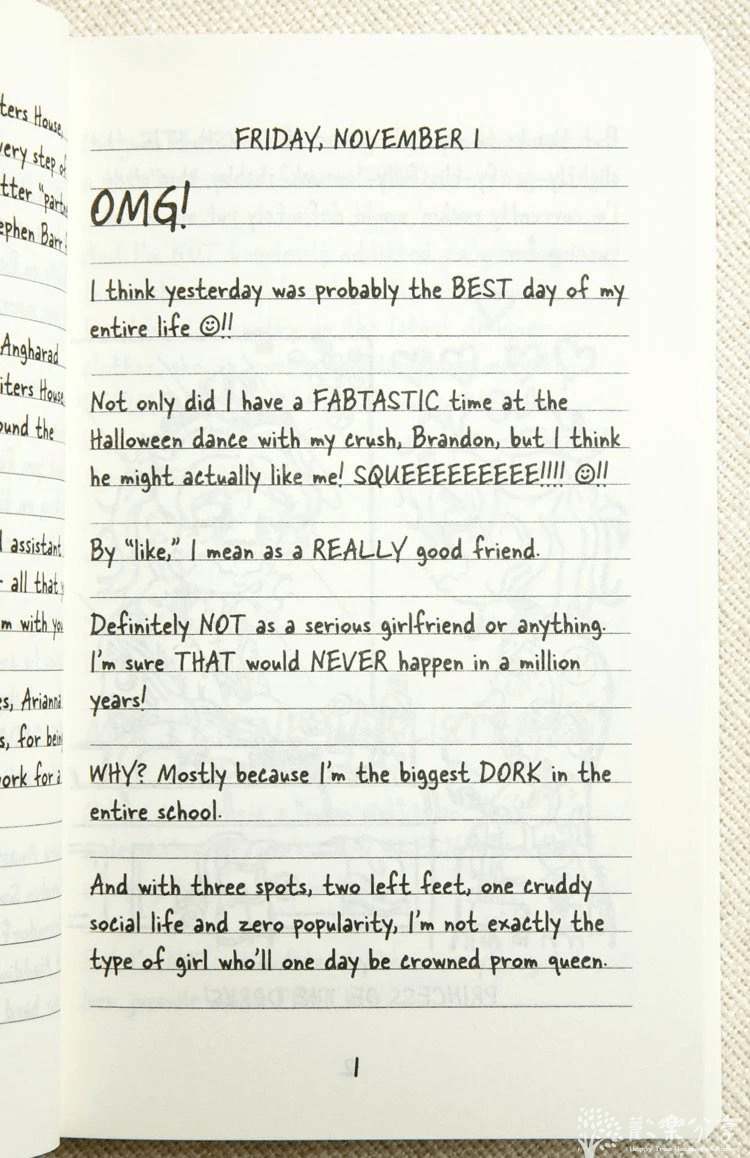 ters House,
very step of
tter "part
ephen Barr
Angharad
iters House
ound the
l assistant
all that
m with you
es, Arianna
s, for bein
ork for a
FRIDAY, NOVEMBER 1
OMG!
I think yesterday was probably the BEST day of my
entire life ☺!!
Not only did I have a FABTASTIC time at the
Halloween dance with my crush, Brandon, but I think
he might actually like me! SQUEEEEEEEEE!!!! ☺!!
By “like,” I mean as a REALLY good friend.
Definitely NOT as a serious girlfriend or anything.
I’m sure THAT would NEVER happen in a million
years!
WHY? Mostly because I’m the biggest DORK in the
entire school.
And with three spots, two left feet, one cruddy
social life and zero popularity, I’m not exactly the
type of girl who’ll one day be crowned prom queen.
1